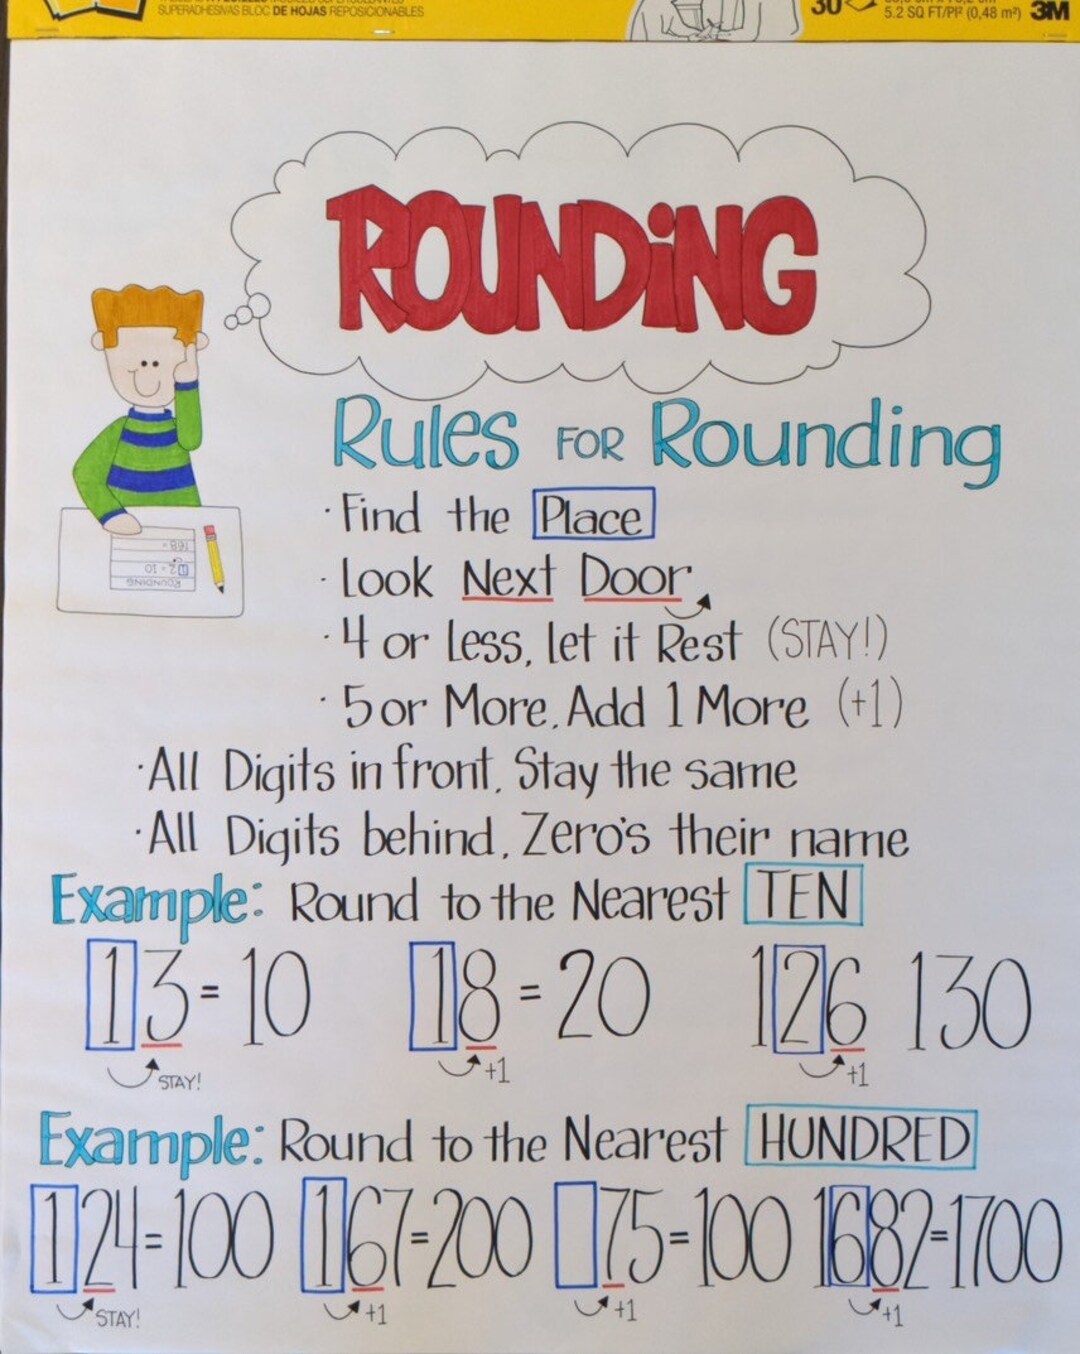 SUPERADHESIVAS BLOC DE HOJAS REPOSICIONABLES
30
5.2 SQ FT/PI² (0,48 m²) 3M
ROUNDiNG
Rules FOR Rounding
· Find the Place
· Look Next Door
· 4 or less, let it Rest (STAY!)
· 5 or More, Add 1 More (+1)
· All Digits in front, Stay the same
· All Digits behind, Zero's their name
ROUNDING
12 = 10
168 =
Example: Round to the Nearest TEN
13 = 10 18 = 20 126 130
STAY! +1 +1
Example: Round to the Nearest HUNDRED
124=100 167=200 75=100 1682=1700
STAY! +1 +1 +1